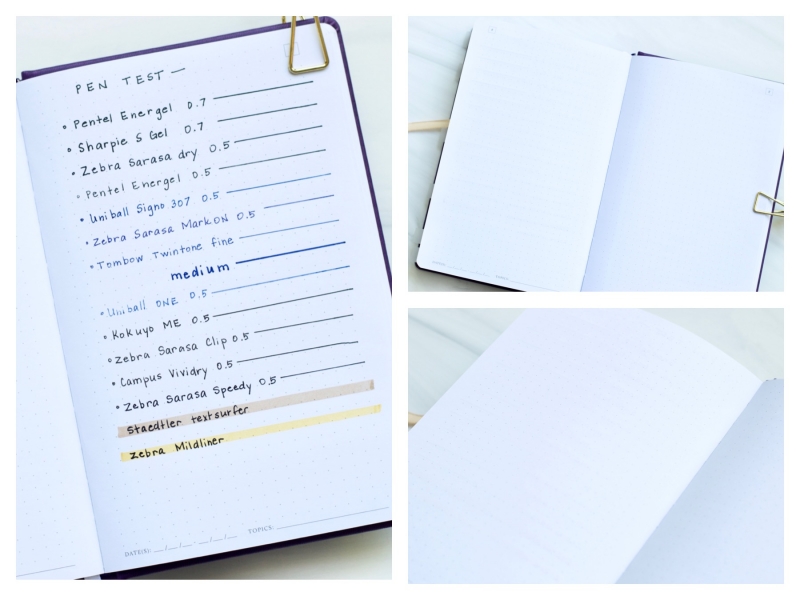 PEN TEST —
• Pentel Energel 0.7
• Sharpie S Gel 0.7
• Zebra Sarasa dry 0.5
• Pentel Energel 0.5
• Uniball Signo 307 0.5
• Zebra Sarasa MarkON 0.5
• Tombow Twintone fine
medium
• Uniball ONE 0.5
• Kokuyo ME 0.5
• Zebra Sarasa Clip 0.5
• Campus Vividry 0.5
• Zebra Sarasa Speedy 0.5
Staedtler textsurfer
Zebra Mildliner
DATE(S): __/__/__ - __/__/__ TOPICS: